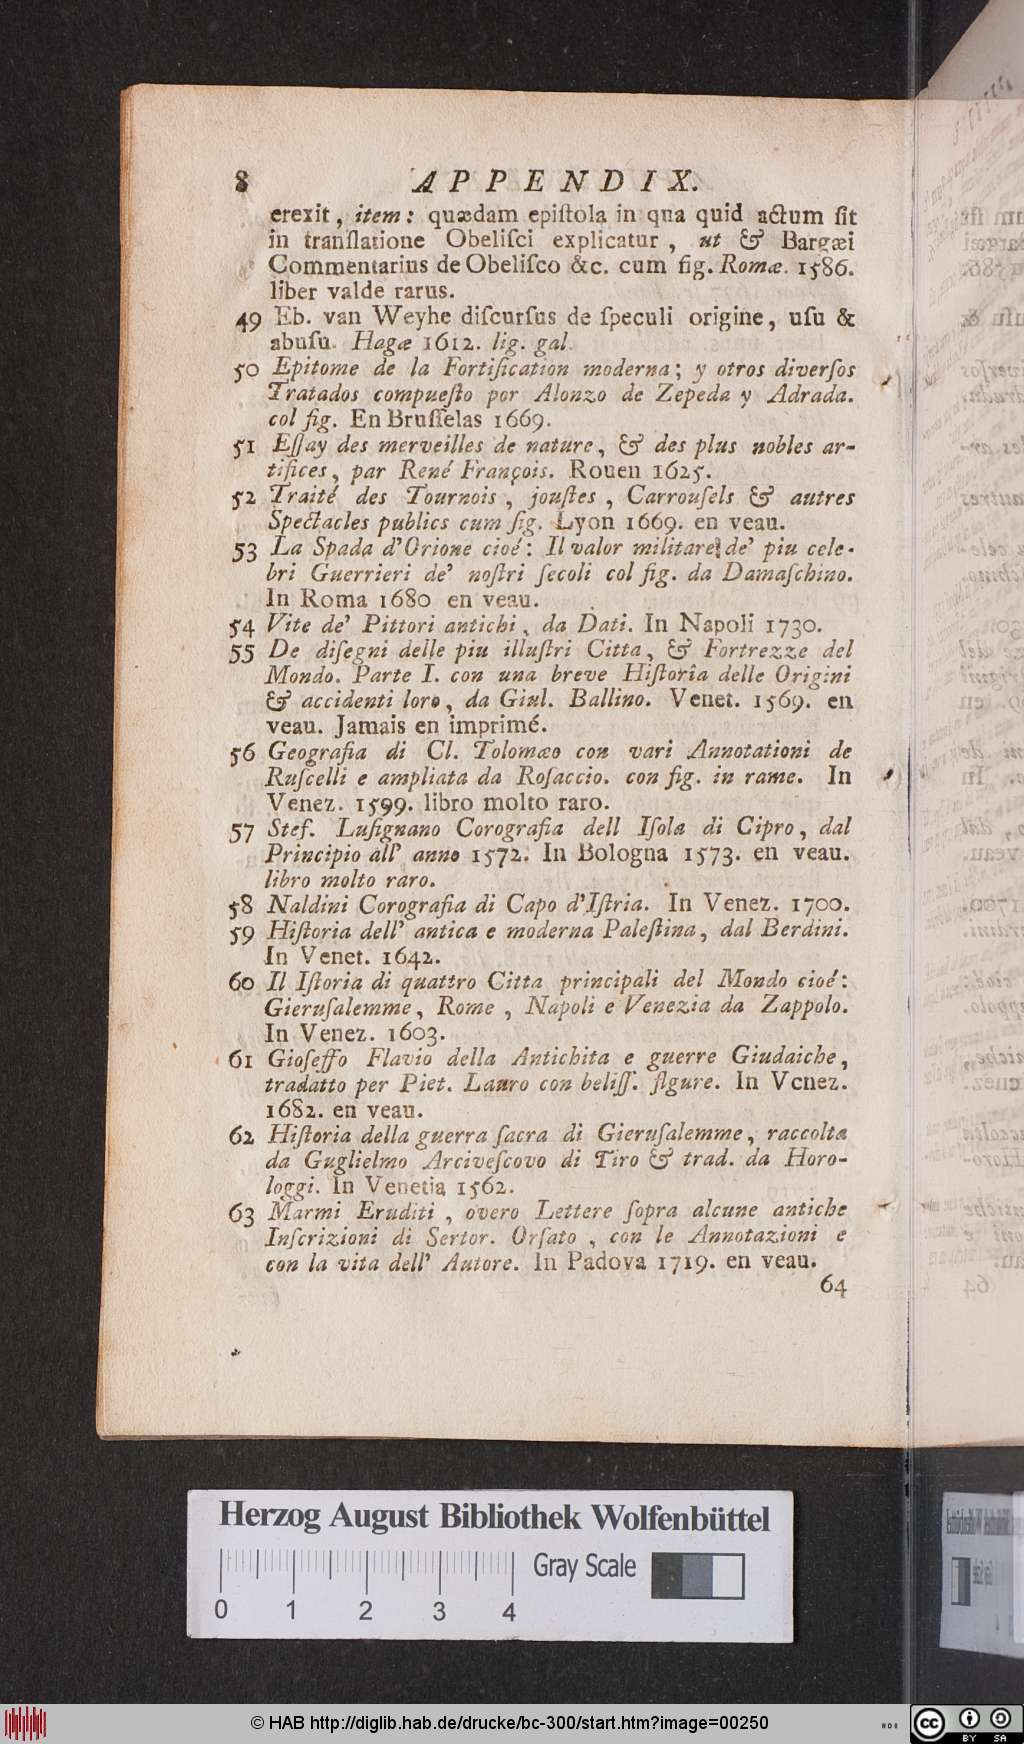 8 APPENDIX.
erexit, item: quædam epiſtola in qua quid actum ſit
in tranſlatione Obeliſci explicatur, ut & Bargæi
Commentarius de Obeliſco &c. cum fig. Romæ. 1586.
liber valde rarus.
49 Eb. van Weyhe diſcurſus de ſpeculi origine, uſu &
abuſu. Hagæ 1612. lig. gal.
50 Epitome de la Fortification moderna; y otros diverſos
Tratados compueſto por Alonzo de Zepeda y Adrada.
col fig. En Bruſſelas 1669.
51 Eſſay des merveilles de nature, & des plus nobles ar-
tifices, par René François. Rouen 1625.
52 Traité des Tournois, jouſtes, Carrouſels & autres
Spectacles publics cum fig. Lyon 1669. en veau.
53 La Spada d'Orione cioé: Il valor militare de' piu cele-
bri Guerrieri de' noſtri ſecoli col fig. da Damaſchino.
In Roma 1680 en veau.
54 Vite de' Pittori antichi, da Dati. In Napoli 1730.
55 De diſegni delle piu illuſtri Citta, & Fortrezze del
Mondo. Parte I. con una breve Hiſtoria delle Origini
& accidenti loro, da Giul. Ballino. Venet. 1569. en
veau. Jamais en imprimé.
56 Geografia di Cl. Tolomæo con vari Annotationi de
Ruſcelli e ampliata da Roſaccio. con fig. in rame. In
Venez. 1599. libro molto raro.
57 Stef. Luſignano Corografia dell Iſola di Cipro, dal
Principio all' anno 1572. In Bologna 1573. en veau.
libro molto raro.
58 Naldini Corografia di Capo d'Iſtria. In Venez. 1700.
59 Hiſtoria dell' antica e moderna Paleſtina, dal Berdini.
In Venet. 1642.
60 Il Iſtoria di quattro Citta principali del Mondo cioé:
Gieruſalemme, Rome, Napoli e Venezia da Zappolo.
In Venez. 1603.
61 Gioſeffo Flavio della Antichita e guerre Giudaiche,
tradatto per Piet. Lauro con beliſſ. figure. In Venez.
1682. en veau.
62 Hiſtoria della guerra ſacra di Gieruſalemme, raccolta
da Guglielmo Arciveſcovo di Tiro & trad. da Horo-
loggi. In Venetia 1562.
63 Marmi Eruditi, overo Lettere ſopra alcune antiche
Inſcrizioni di Sertor. Orſato, con le Annotazioni e
con la vita dell' Autore. In Padova 1719. en veau.
64
Herzog August Bibliothek Wolfenbüttel
Gray Scale
0 1 2 3 4
© HAB http://diglib.hab.de/drucke/bc-300/start.htm?image=00250
cc BY SA